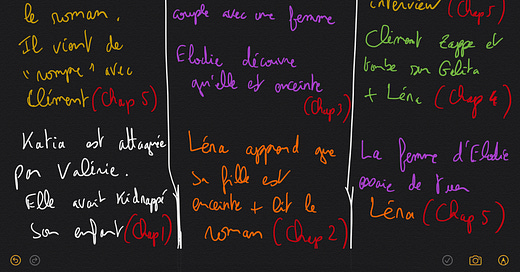 le roman.
Il vient de
"rompre" avec
Clément (Chap 5)
Katia est attaquée
par Valérie.
Elle avait kidnappé
son enfant (Chap 1)
couple avec une femme
Elodie découvre
qu'elle est enceinte
(Chap 3)
Léna apprend que
sa fille est
enceinte + lit le
roman (Chap 2)
interview (Chap 5)
Clément zappe et
tombe sur Galita
+ Léna (Chap 4)
La femme d'Elodie
essaie de tuer
Léna (Chap 5)